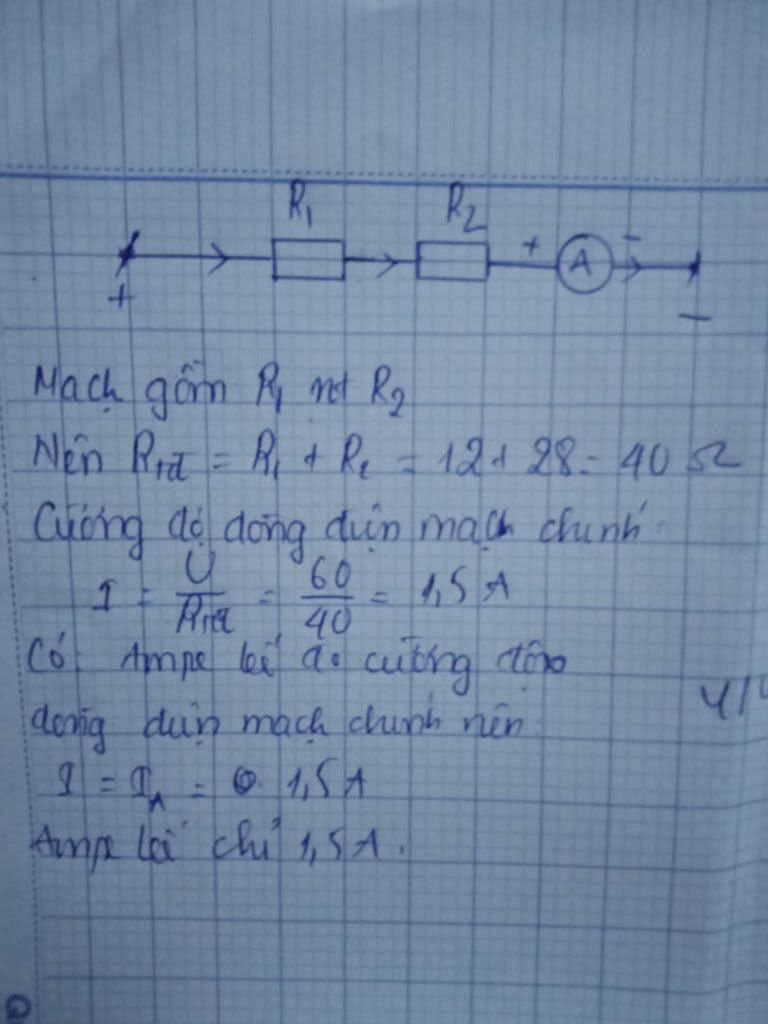 R₁ R₂
+ A -
+ -
Mạch gồm R₁ nt R₂
Nên Rtđ = R₁ + R₂ = 12 + 28 = 40 Ω
Cường độ dòng điện mạch chính
I = U/Rtđ = 60/40 = 1,5 A
Có Ampe kế đo cường độ
dòng điện mạch chính nên
I = I_A = 1,5 A
Ampe kế chỉ 1,5 A.